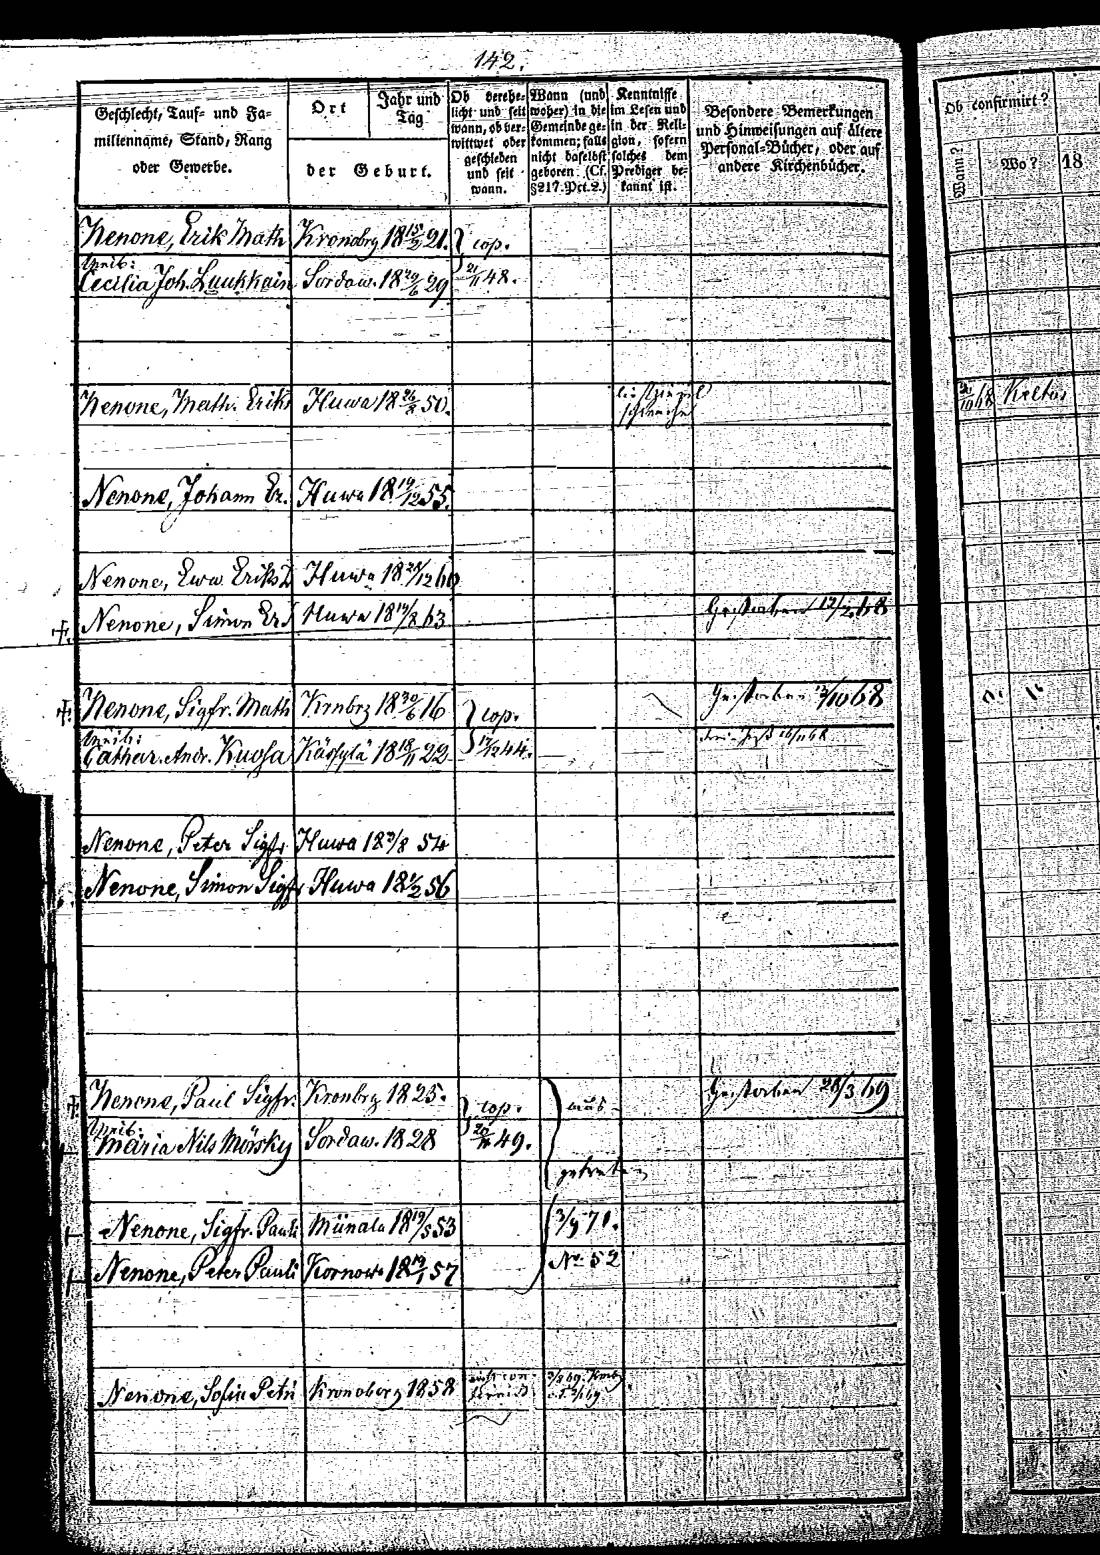 142.
Geschlecht, Tauf- und Fa-
milienname, Stand, Rang
oder Gewerbe.
Ort
Jahr und
Tag
der Geburt.
Ob verehe-
licht und seit
wann, ob ver-
wittwet oder
geschieden
und seit
wann.
Wann (und
woher) in die
Gemeinde ge-
kommen; falls
nicht daselbst
geboren. (Cf.
§217. Pct. 2.)
Kenntnisse
im Lesen und
in der Reli-
gion, sofern
solches dem
Prediger be-
kannt ist.
Besondere Bemerkungen
und Hinweisungen auf ältere
Personal-Bücher, oder auf
andere Kirchenbücher.
Ob confirmirt?
Wann?
Wo?
18
Nenone, Erik Math Kronobrg 18 15/2 21. cop.
Weib:
Cecilia Joh. Luukkain Sordaw. 18 29/6 29 21/11 48.
Nenone, Math. Eriks Huwa 18 50. Keltos
Nenone, Johann Er. Huwa 18 19/12 55.
Nenone, Ewa Eriks D Huwa 18 28/12 60
Nenone, Simon Er. Huwa 18 19/2 63 Gestorben 12/2 68
Nenone, Sigfr. Math Krnbrg 18 30/6 16 cop. Gestorben 13/10 68
Weib:
Cathar. Andr. Kuosa 18 18/11 22 17/12 44. 16/11 68
Nenone, Peter Sigfr Huwa 18 3/8 54
Nenone, Simon Sigfr Huwa 18 1/2 56
Nenone, Paul Sigfr. Kronbrg 1825. cop. aus- Gestorben 28/3 69
Weib:
Maria Nils Mörsky Sordaw. 1828 49.
getreten
Nenone, Sigfr. Pauli Münala 18 19/5 53 3/9 71.
Nenone, Peter Pauli Kornowo 18 19/1 57 No 52
Nenone, Sofia Petri Kronoberg 1858